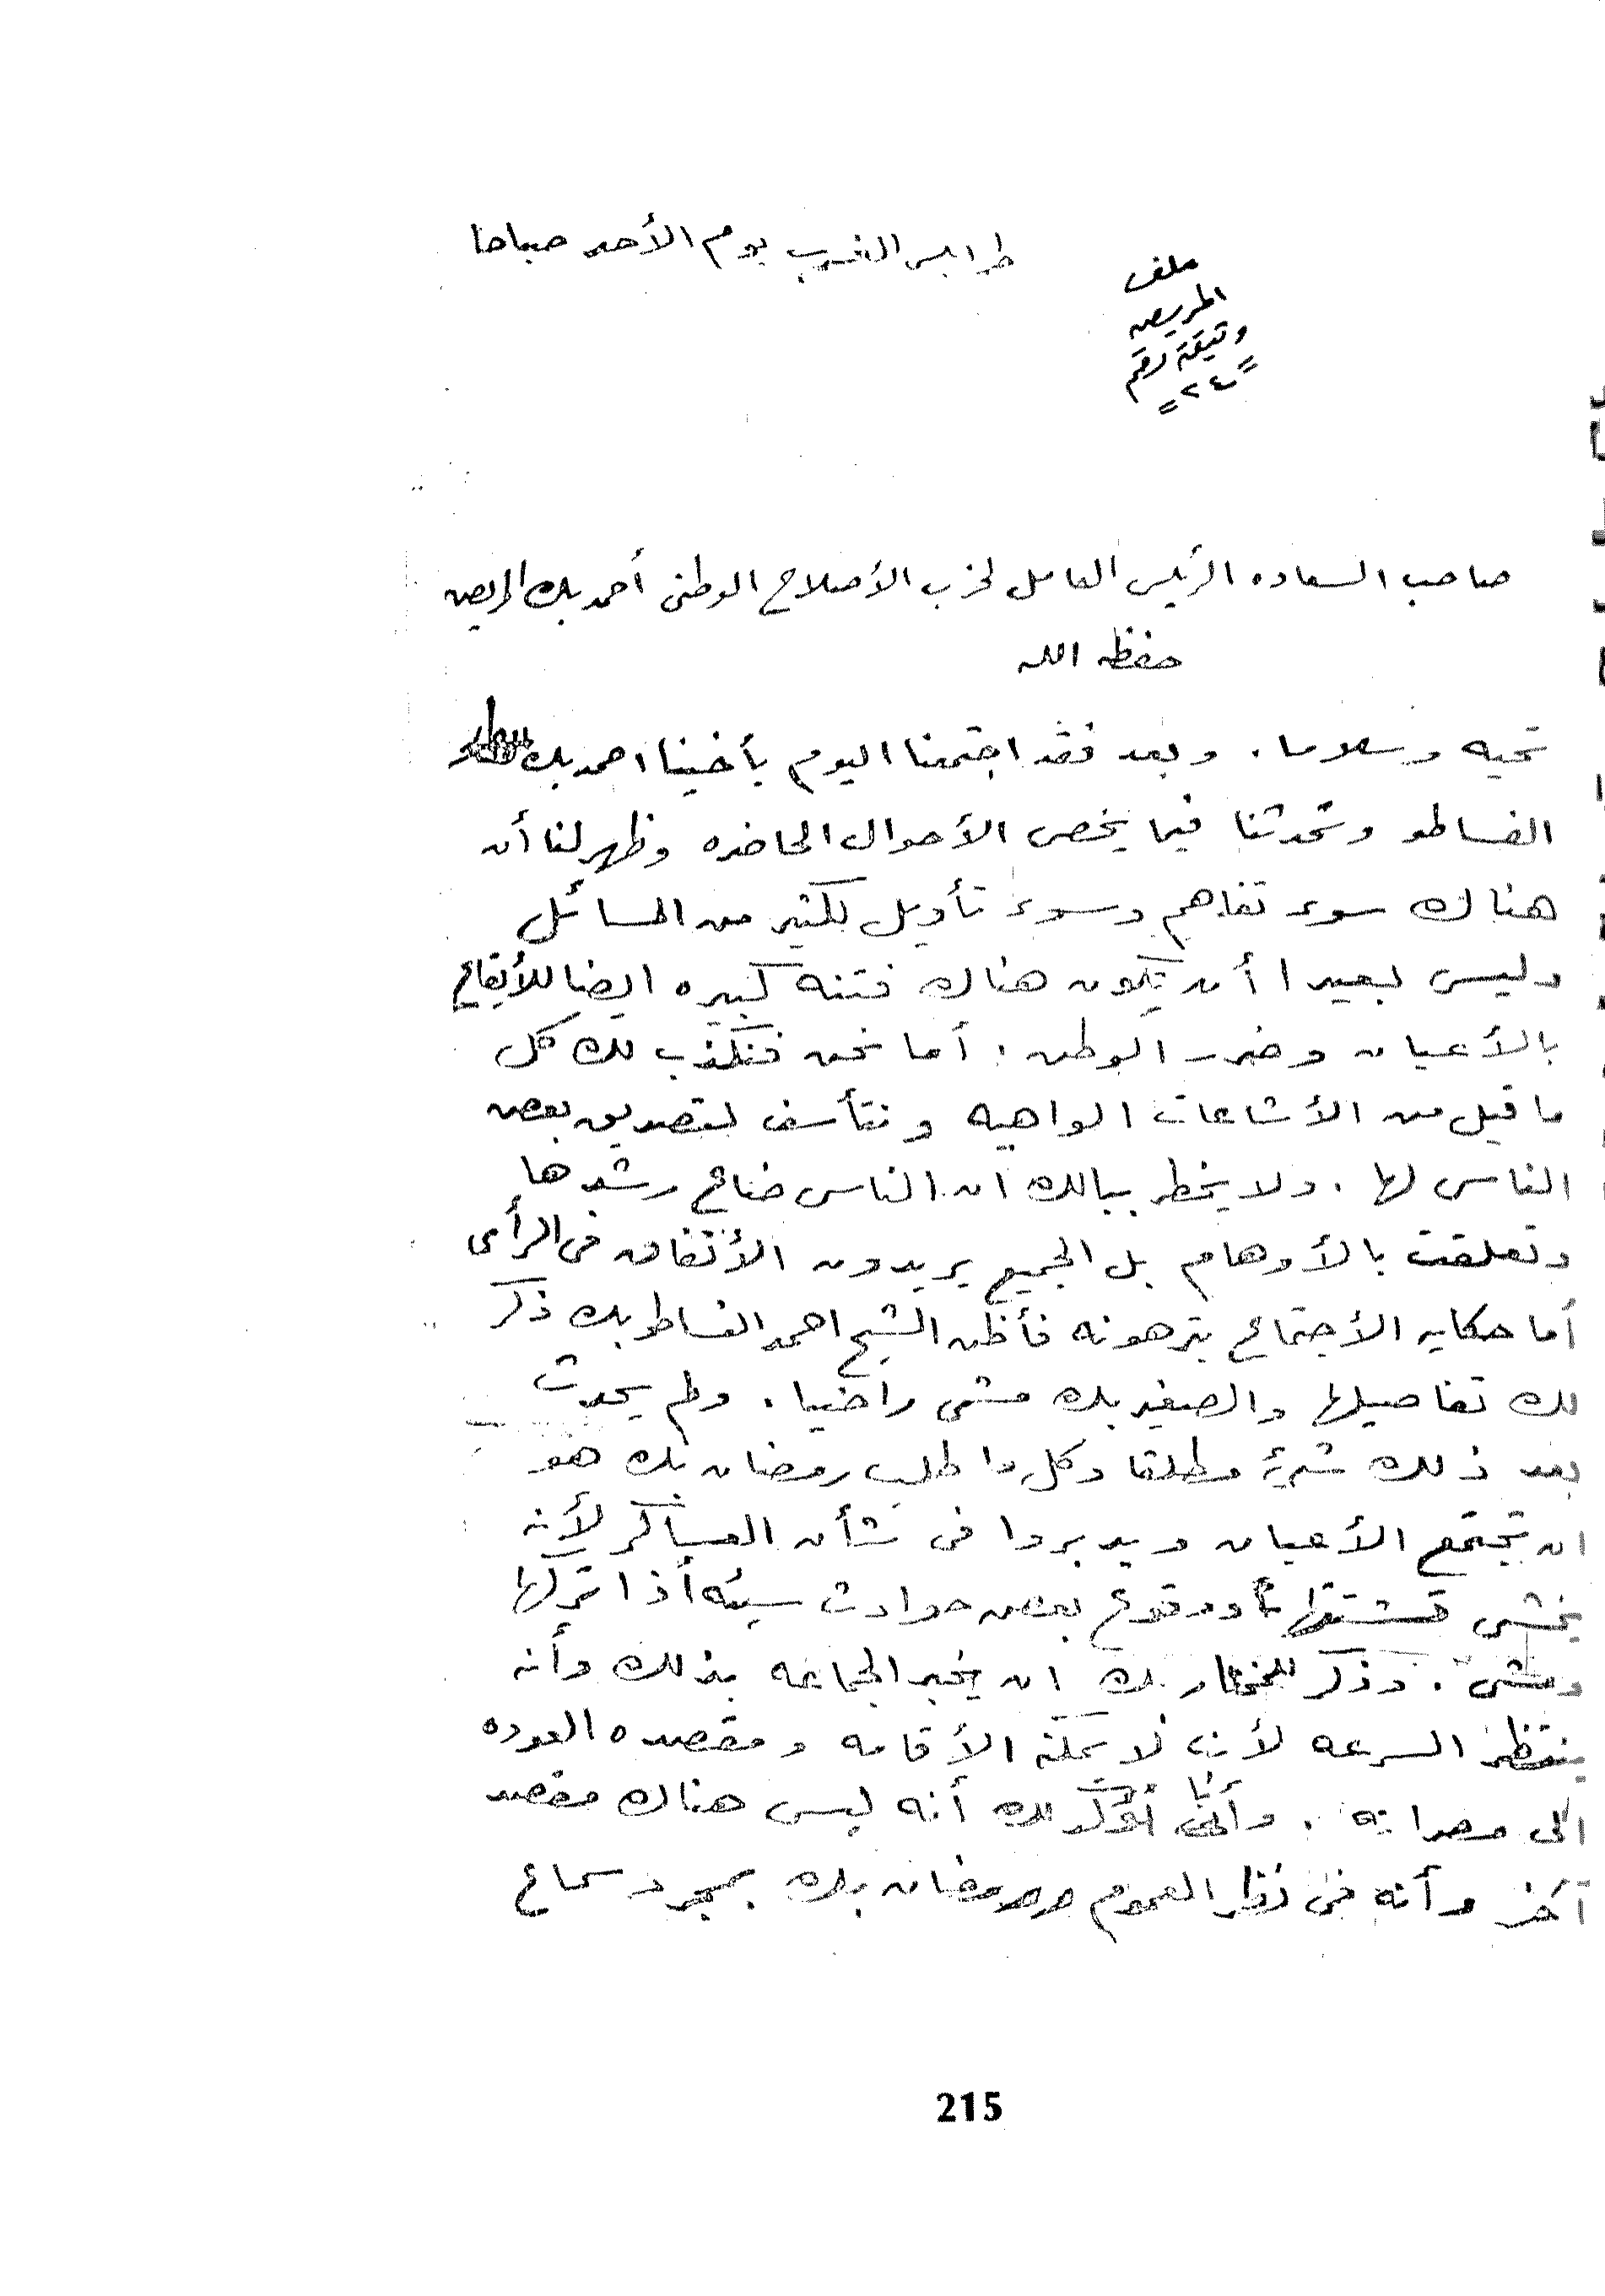 طرابلس الغرب يوم الأحد صباحا
ملف
المريض
وثيقة رقم
= ٢٤ =
صاحب السعاده الرئيس العامل لحزب الأصلاح الوطنى أحمد بك المريض
حفظه الله
تحيه وسلاما . وبعد فقد اجتمعنا اليوم بأخينا احمد بك
الفساطو وتحدثنا فيما يخص الأحوال الحاضره وظهر لنا أن
هناك سوء تفاهم وسوء تأويل لكثير من المسائل
وليس بعيدا أن تكون هناك فتنه كبيره ايضا للأيقاع
بالأعيان وضرر الوطن . أما نحن فنكذب لك كل
ما قيل من الأشاعات الواهيه ونتأسف لتصديق بعض
الناس لها . ولا يخطر ببالك ان الناس ضائع رشدها
وتعلقت بالأوهام بل الجميع يريدون الأتفاق فى الرأى
أما حكاية الأجتماع بترهونه فأظن الشيخ احمد الفساطو بك ذكر
لك تفاصيلها والصغير بك مشى راضيا . ولم يحدث
بعد ذلك شئ مطلقا وكل ما طلب رمضان بك هو
ان تجتمع الأعيان ويدبروا فى شأن العساكر لأنه
يخشى تشتتها ووقوع بعض حوادث سيئه أذا تركها
ومشى . وذكر للمختار بك ان يخبر الجماعه بذلك وأنه
ينتظر السرعه لأنه لا يمكنه الأقامه ومقصده العوده
الى مصراته . وأنا أؤكد لك أنه ليس هناك مقصد
آخر وأنه فى نظر العموم رمضان بك بمجرد سماع
215